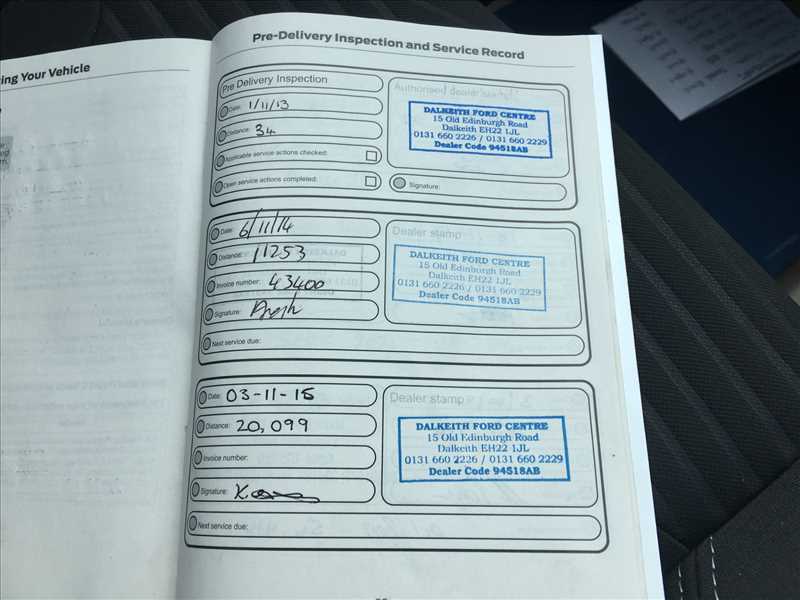 ing Your Vehicle
Pre-Delivery Inspection and Service Record
Pre Delivery Inspection
Date: 1/11/13
Distance: 34
Applicable service actions checked:
Open service actions completed:
Authorised dealer stamp
DALKEITH FORD CENTRE
15 Old Edinburgh Road
Dalkeith EH22 1JL
0131 660 2226 / 0131 660 2229
Dealer Code 94518AB
Signature:
Date: 6/11/14
Distance: 11253
Invoice number: 43400
Signature:
Next service due:
Dealer stamp
DALKEITH FORD CENTRE
15 Old Edinburgh Road
Dalkeith EH22 1JL
0131 660 2226 / 0131 660 2229
Dealer Code 94518AB
Date: 03-11-15
Distance: 20,099
Invoice number:
Signature:
Next service due:
Dealer stamp
DALKEITH FORD CENTRE
15 Old Edinburgh Road
Dalkeith EH22 1JL
0131 660 2226 / 0131 660 2229
Dealer Code 94518AB